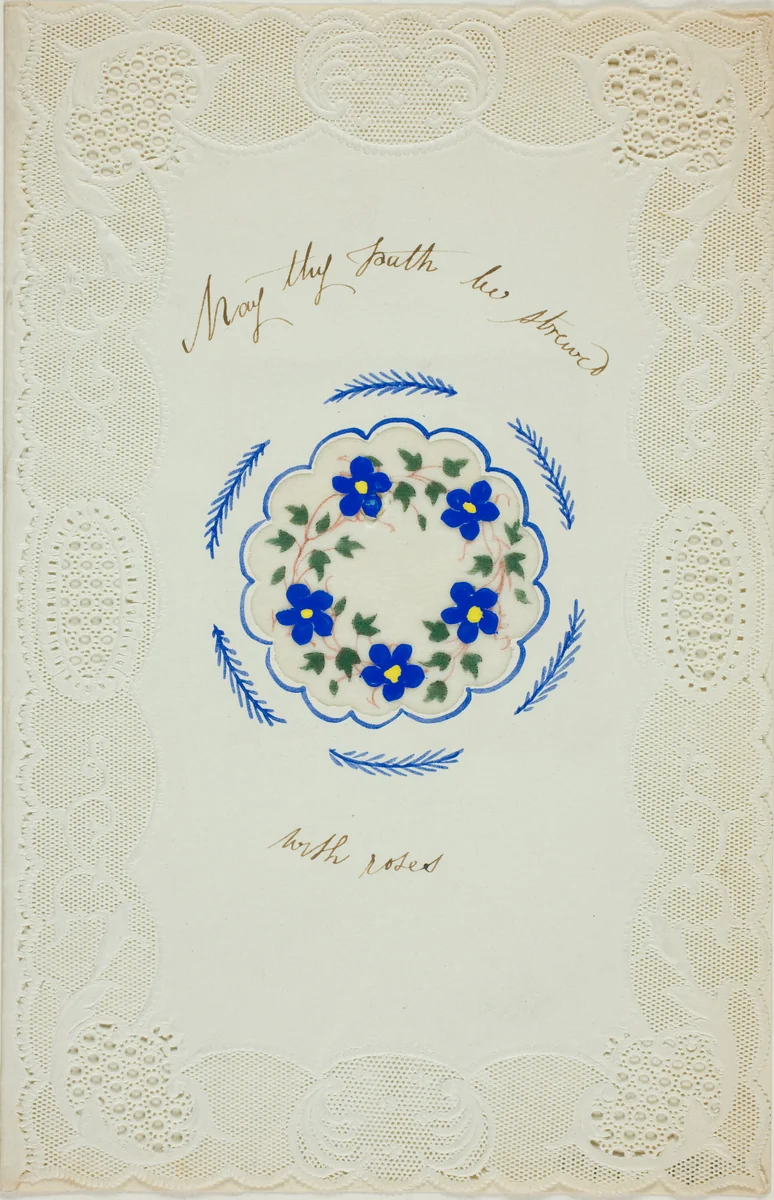 May thy path be strewed
with roses